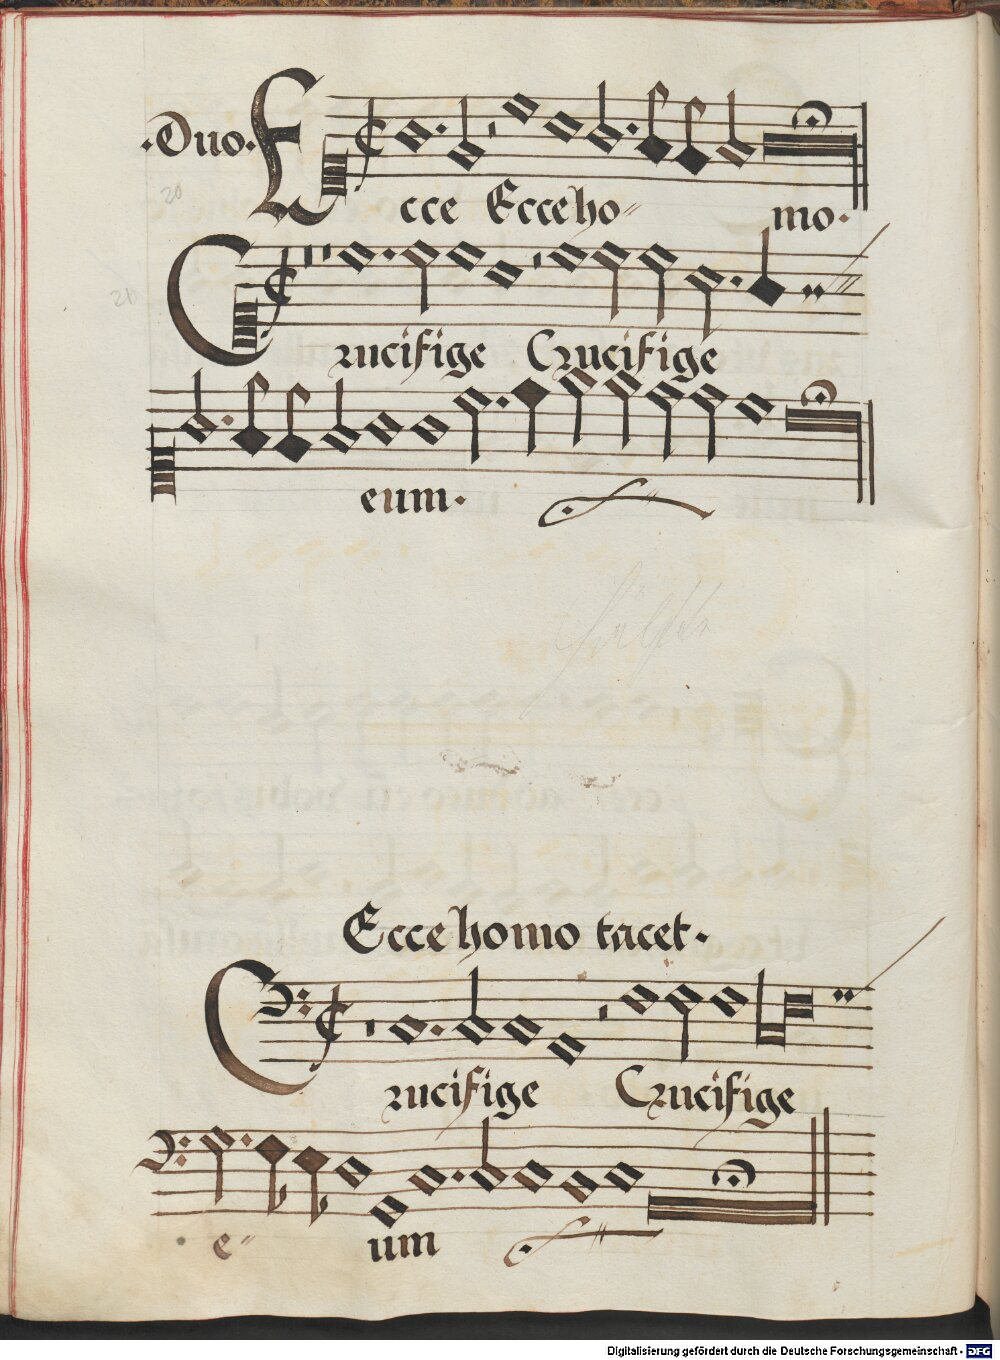 ·Duo·
Ecce Ecce ho= mo·
20
Crucifige Crucifige
20
eum·
Ecce homo tacet·
Crucifige Crucifige
e= um
Digitalisierung gefördert durch die Deutsche Forschungsgemeinschaft - DFG